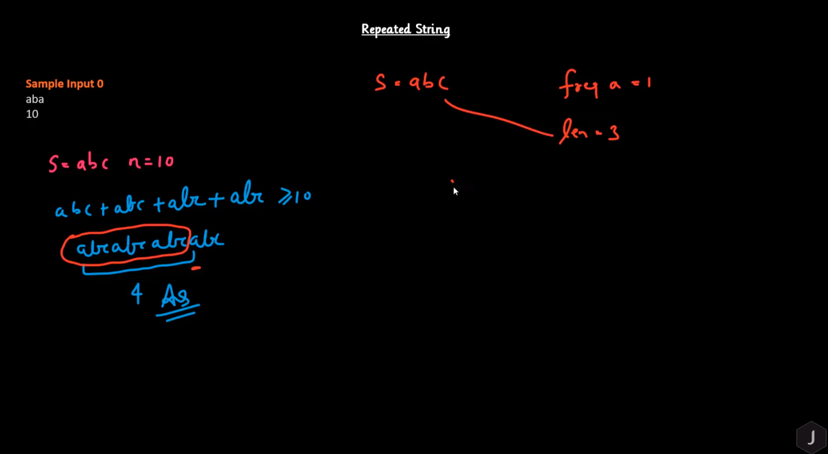 Repeated String
Sample Input 0
aba
10
S = abc n = 10
abc + abc + abc + abc ≥ 10
abcabcabcabc
4 As
S = abc
freq a = 1
len = 3
J